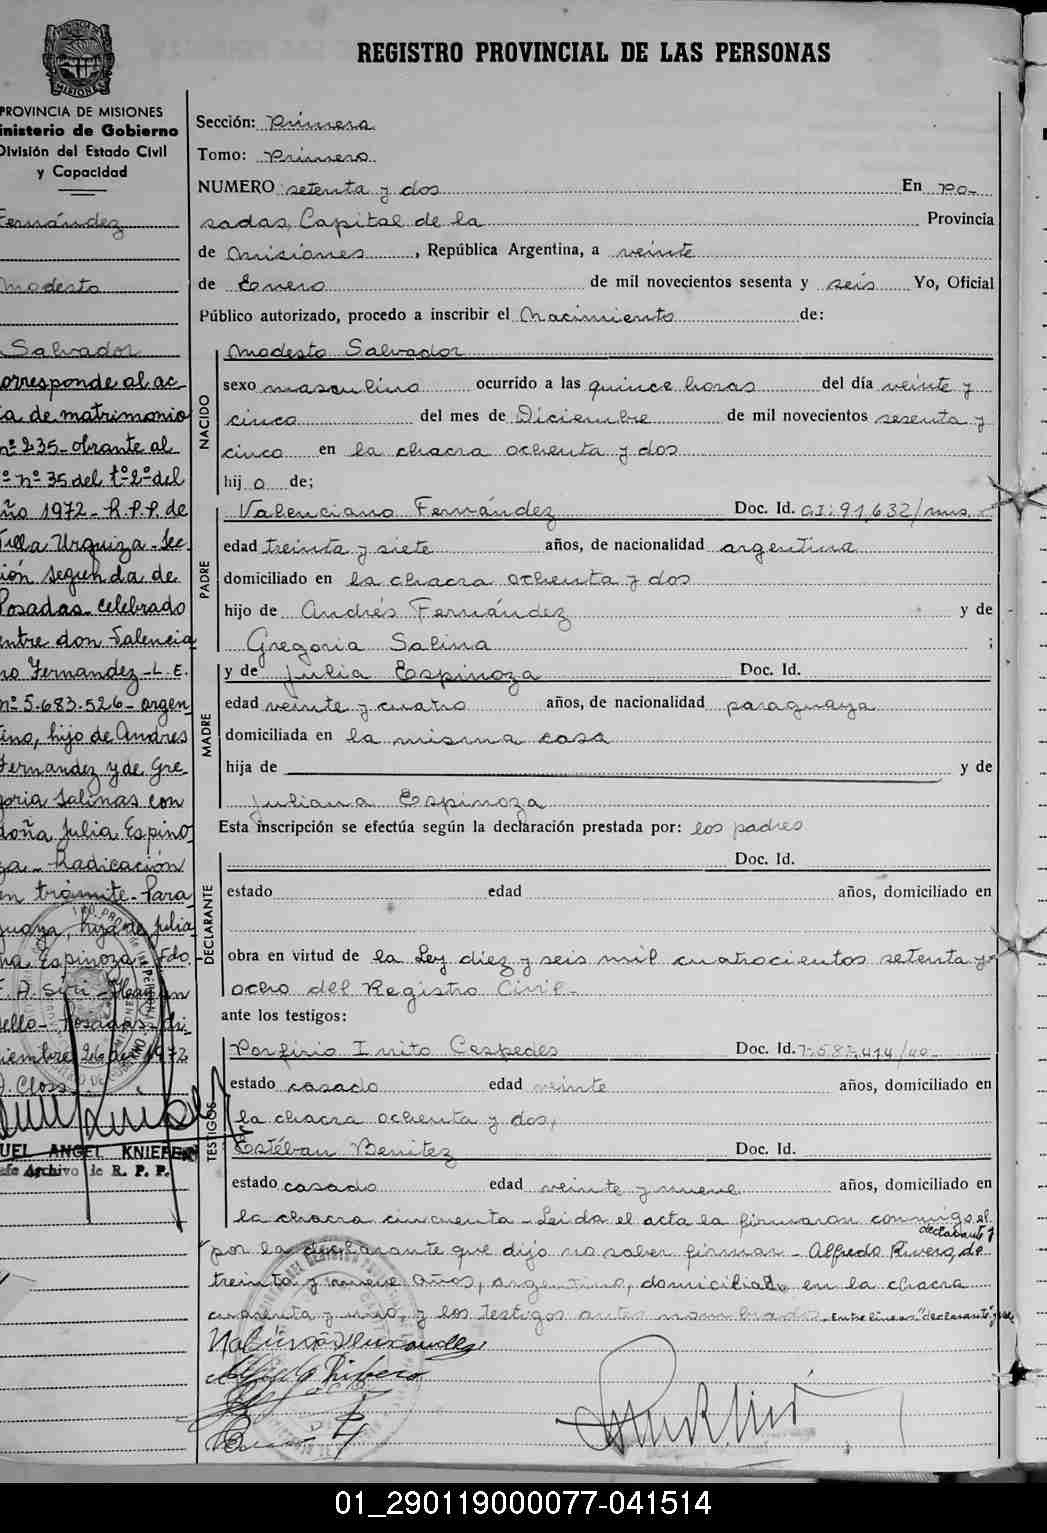 REGISTRO PROVINCIAL DE LAS PERSONAS
PROVINCIA DE MISIONES
Ministerio de Gobierno
División del Estado Civil
y Capacidad
Fernández
Modesto
Salvador
corresponde al ac-
ta de matrimonio
nº 235- obrante al
Fº nº 35 del tº 2º del
año 1972- R.P.P. de
Villa Urquiza- Sec-
ción segunda de
Posadas- celebrado
entre don Valencia
no Fernandez- L.E.
nº 5.683.526- argen
tino, hijo de Andres
Fernandez y de Gre
goria Salinas con
doña Julia Espino
za- Radicación
en trámite- Para
guaya, hija de Julia
na Espinoza- Fdo.
Posadas- di-
ciembre 26 de 1972
MIGUEL ANGEL KNIEFER
Jefe Archivo de R. P. P.
Sección: Primera
Tomo: Primero
NUMERO setenta y dos En Po-
sadas, Capital de la Provincia
de Misiones, República Argentina, a veinte
de Enero de mil novecientos sesenta y seis Yo, Oficial
Público autorizado, procedo a inscribir el Nacimiento de:
NACIDO
Modesto Salvador
sexo masculino ocurrido a las quince horas del día veinte y
cinco del mes de Diciembre de mil novecientos sesenta y
cinco en la chacra ochenta y dos
hij o de;
PADRE
Valenciano Fernández Doc. Id. CI: 91,632/mns.
edad treinta y siete años, de nacionalidad argentina
domiciliado en la chacra ochenta y dos
hijo de Andrés Fernández y de
Gregoria Salina ;
MADRE
y de Julia Espinoza Doc. Id.
edad veinte y cuatro años, de nacionalidad paraguaya
domiciliada en la misma casa
hija de y de
Juliana Espinoza
Esta inscripción se efectúa según la declaración prestada por: los padres
DECLARANTE
Doc. Id.
estado edad años, domiciliado en
obra en virtud de la Ley diez y seis mil cuatrocientos setenta y
ocho del Registro Civil-
ante los testigos:
TESTIGOS
Porfirio Cespedes Doc. Id. 7.587.414
estado casado edad veinte años, domiciliado en
la chacra ochenta y dos,
Estéban Benitez Doc. Id.
estado casado edad veinte y nueve años, domiciliado en
la chacra cincuenta- Leida el acta la firmaron conmigo el
declarante y
por la declarante que dijo no saber firmar- Alfredo Rivero, de
treinta y nueve años, argentino, domiciliado en la chacra
cuarenta y uno, y los Testigos antes nombrados. Entre lineas "declarante y
01_290119000077-041514